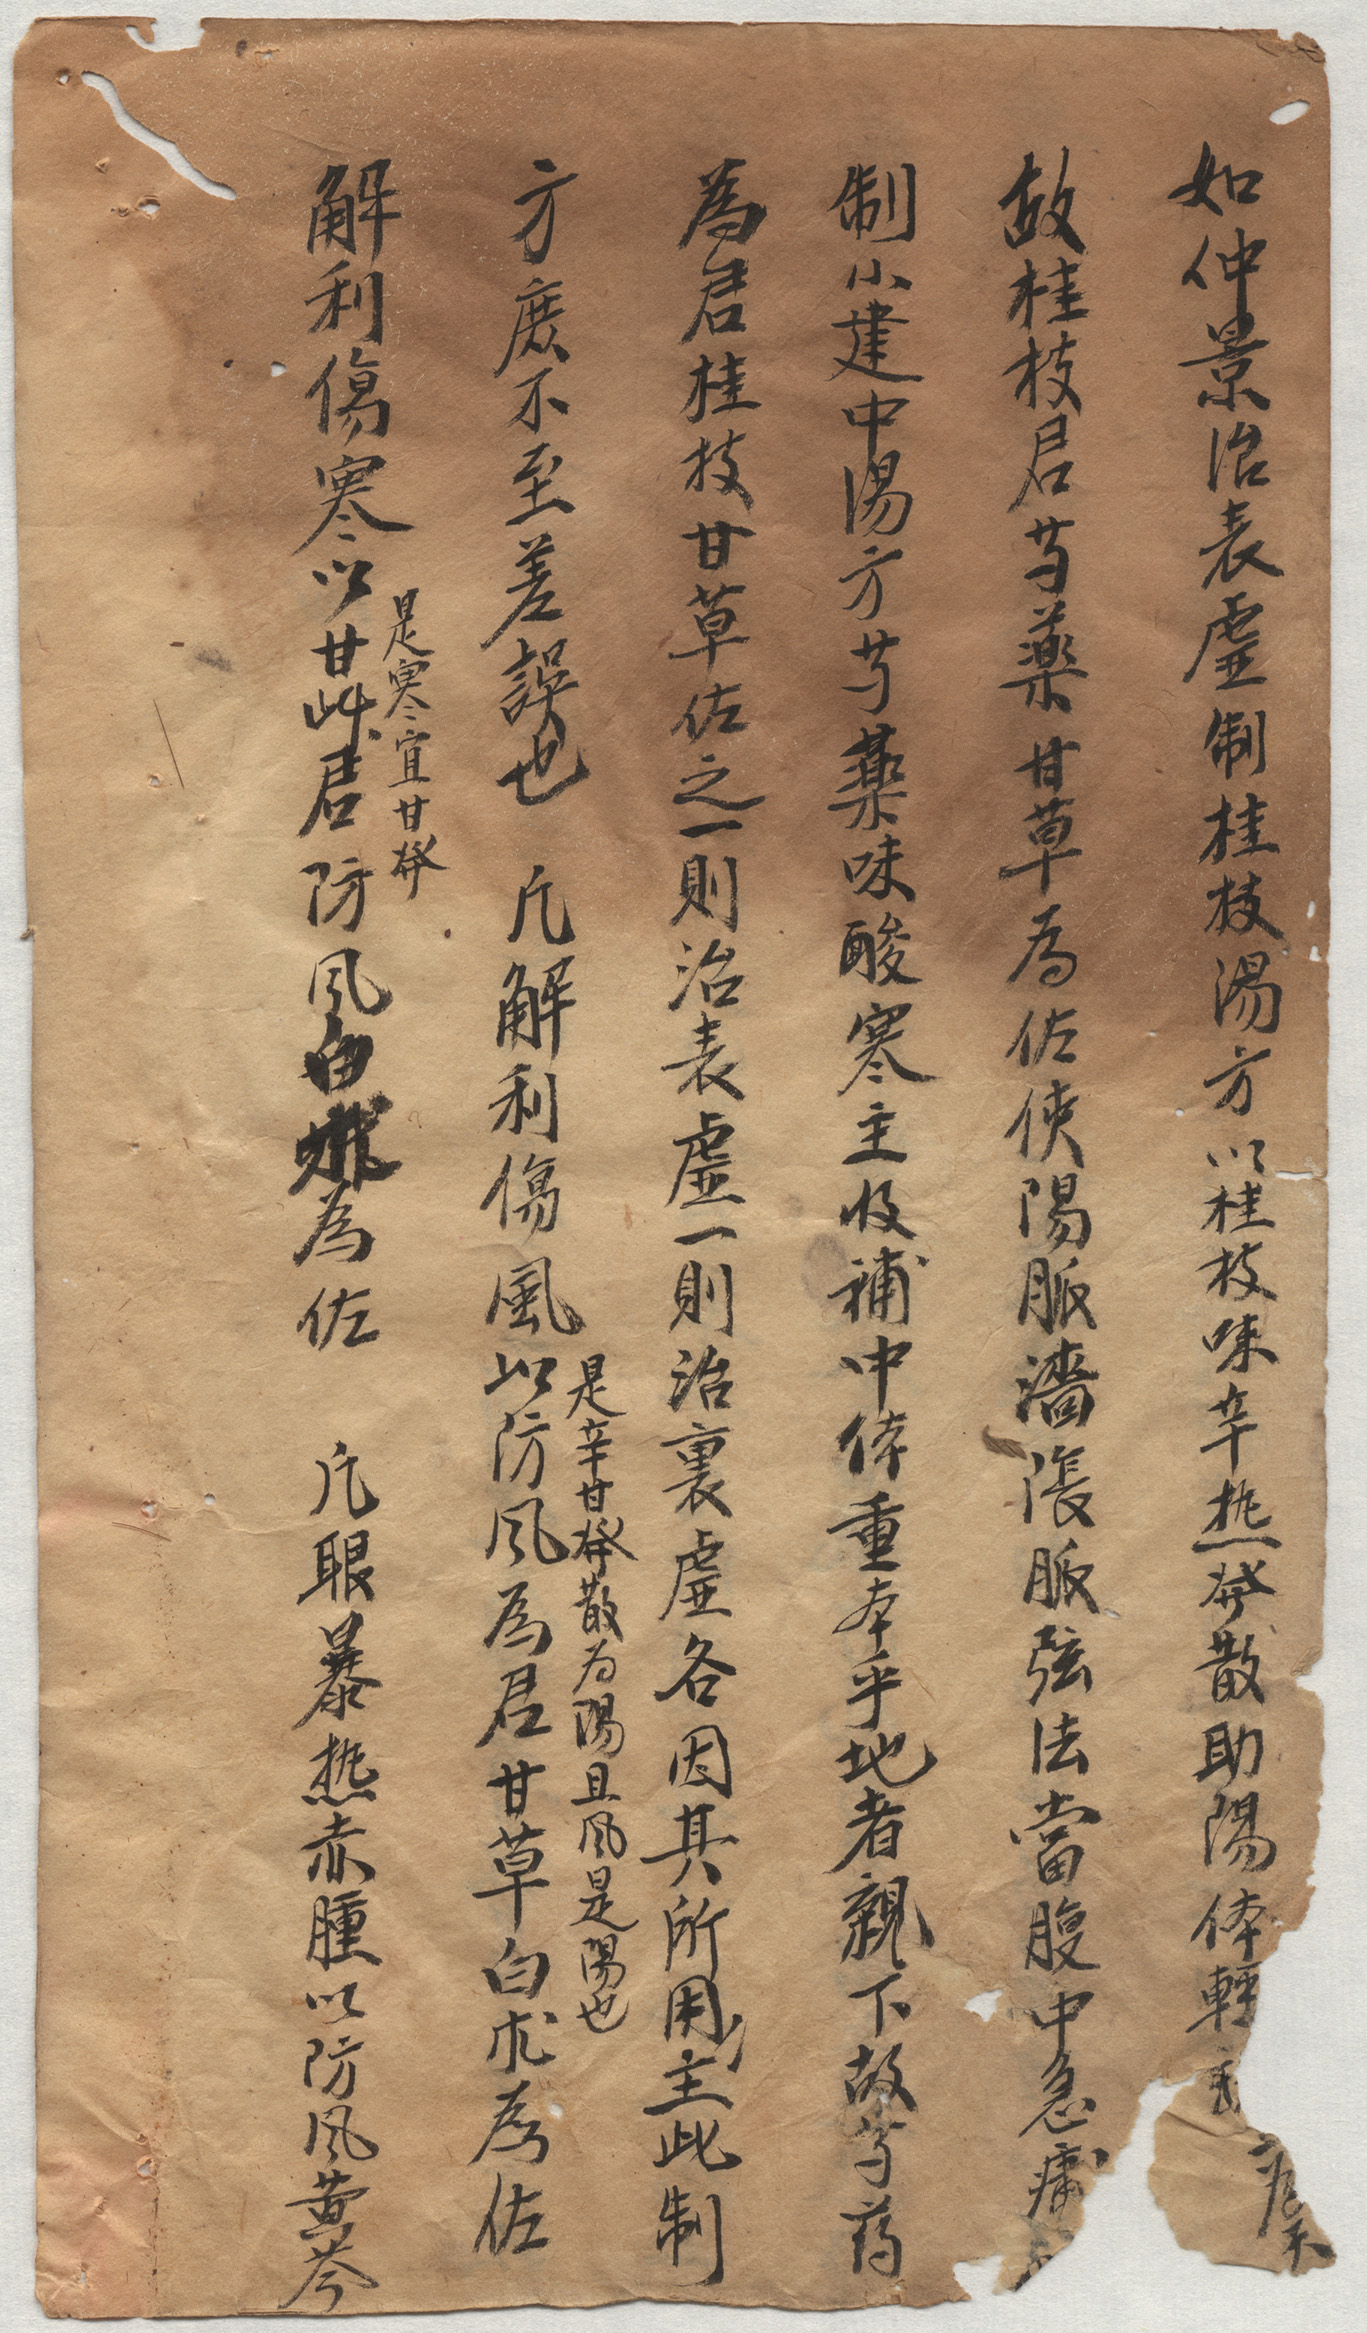 如仲景治表虛制桂枝湯方以桂枝味辛热發散助陽体輕
故桂枝君芍藥甘草為佐使陽脈濇陰脈弦法當腹中急痛
制小建中湯方芍藥味酸寒主收補中体重本乎地者親下故芍药
為君桂枝甘草佐之一則治表虛一則治裏虛各因其所用主此制
方庶不至差誤也 凡解利傷風以防风為君甘草白朮為佐
是辛甘發散为陽且风是陽也
解利傷寒以甘艸君防风白朮為佐 凡眼暴热赤腫以防风黄芩
是寒宜甘發